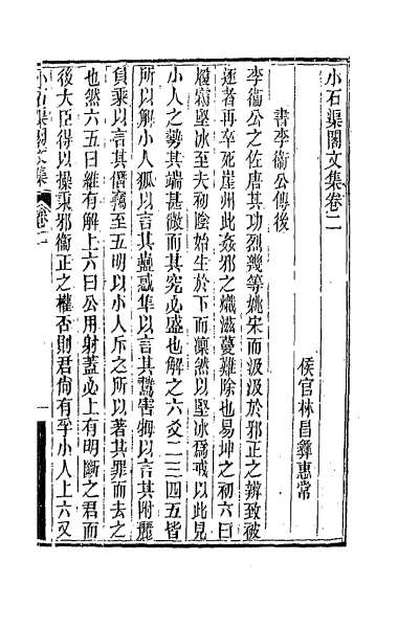 小石渠閣文集卷二
侯官林昌彝惠常
書李衞公傳後
李衞公之佐唐其功烈幾等姚宋而汲汲於邪正之辨致被
逐者再卒死崖州此姦邪之熾滋蔓難除也易坤之初六曰
履霜堅冰至夫初陰始生於下而凜然以堅冰爲戒以此見
小人之勢其端甚微而其究必盛也解之六爻二三四五皆
所以解小人狐以言其蠱惑隼以言其鷙害拇以言其附麗
負乘以言其僭竊至五明以小人斥之所以著其罪而去之
也然六五曰維有解上六曰公用射蓋必上有明斷之君而
後大臣得以操棄邪衞正之權否則君尙有孚小人上六又
小石渠閣文集
卷二
一